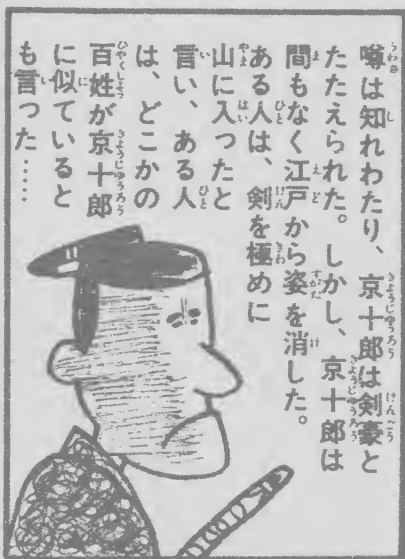 噂は知れわたり、京十郎は剣豪と
たたえられた。しかし、京十郎は
間もなく江戸から姿を消した。
ある人は、剣を極めに
山に入ったと
言い、ある人
は、どこかの
百姓が京十郎
に似ていると
も言った……